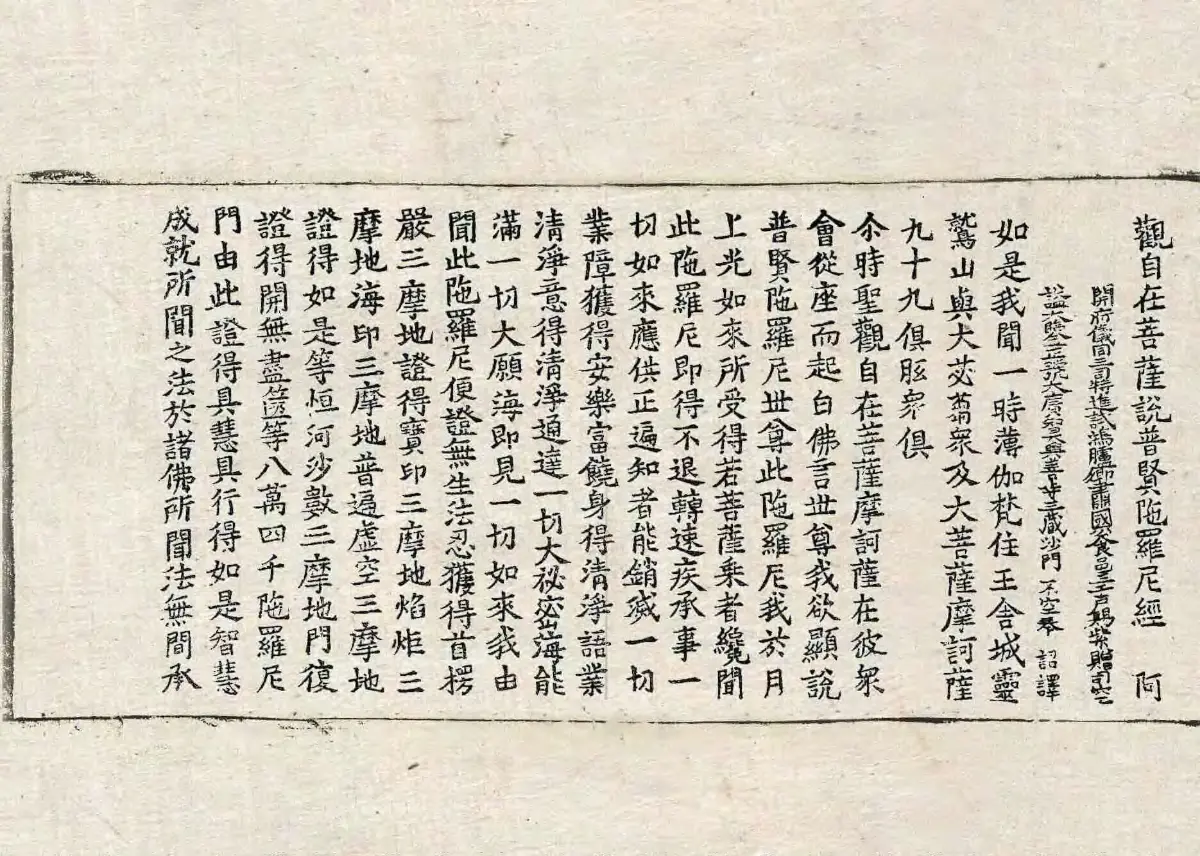 觀自在菩薩說普賢陁羅尼經 阿
開府儀同三司特進試鴻臚卿肅國公食邑三千戶賜紫贈司空
謚大鑒正號大廣智大興善寺三藏沙門 不空奉 詔譯
如是我聞一時薄伽梵住王舍城靈
鷲山與大苾蒭衆及大菩薩摩訶薩
九十九俱胝衆俱
尒時聖觀自在菩薩摩訶薩在彼衆
會從座而起白佛言世尊我欲顯說
普賢陁羅尼世尊此陁羅尼我於月
上光如來所受得若菩薩乘者纔聞
此陁羅尼即得不退轉速疾承事一
切如來應供正遍知者能銷滅一切
業障獲得安樂富饒身得清淨語業
清淨意得清淨通達一切大祕密海能
滿一切大願海即見一切如來我由
聞此陁羅尼便證無生法忍獲得首楞
嚴三摩地證得寶印三摩地焰炬三
摩地海印三摩地普遍虛空三摩地
證得如是等恒河沙數三摩地門復
證得開無盡篋等八萬四千陁羅尼
門由此證得具慧具行得如是智慧
成就所聞之法於諸佛所聞法無間承